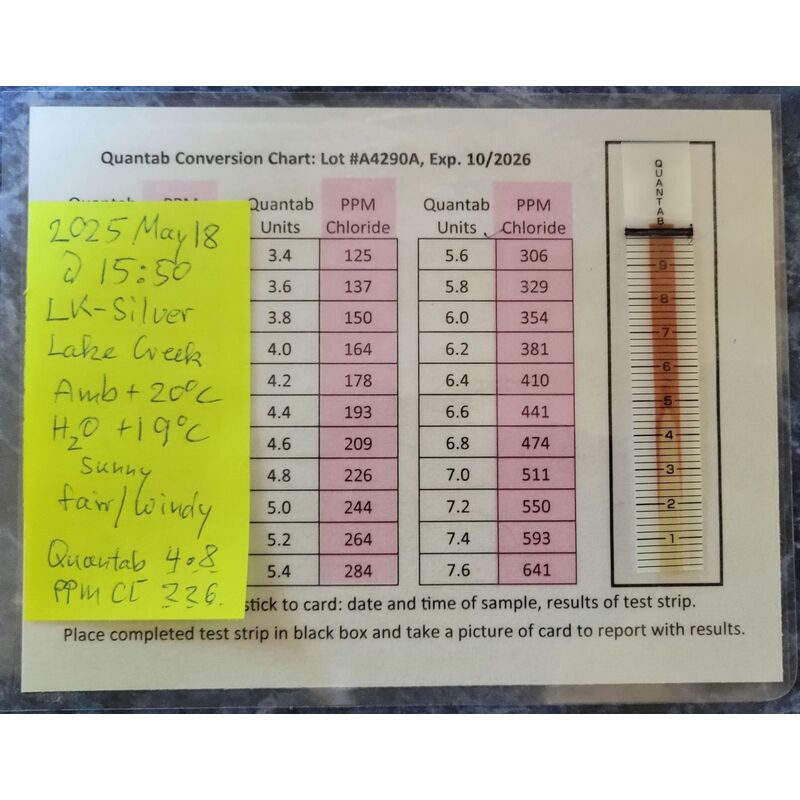 Quantab Conversion Chart: Lot #A4290A, Exp. 10/2026
Quantab PPM Quantab PPM
Units Chloride Units Chloride
3.4 125 5.6 306
3.6 137 5.8 329
3.8 150 6.0 354
4.0 164 6.2 381
4.2 178 6.4 410
4.4 193 6.6 441
4.6 209 6.8 474
4.8 226 7.0 511
5.0 244 7.2 550
5.2 264 7.4 593
5.4 284 7.6 641
stick to card: date and time of sample, results of test strip.
Place completed test strip in black box and take a picture of card to report with results.
2025 May 18
@ 15:50
LK-Silver
Lake Creek
Amb + 20°C
H₂O +19°C
sunny
fair/windy
Quantab 4.8
PPM Cl 226.
QUANTAB
9
8
7
6
5
4
3
2
1